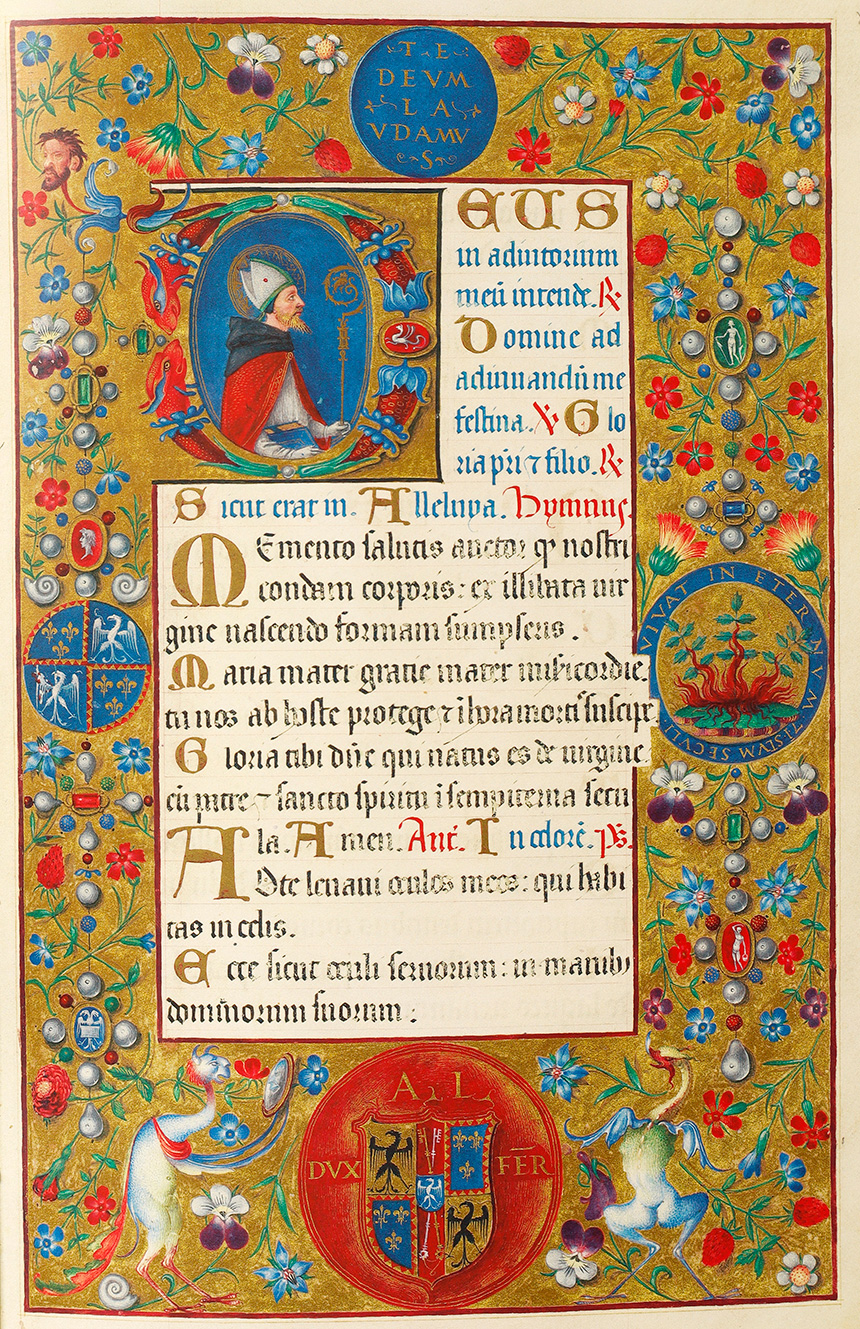 TE
DEVM
LA
VDAMV
S
DEUS
in adiutorium
meū intende. ℟
Domine ad
adiuuandū me
festina. ℣ Glo
ria pr̄i ⁊ filio. ℟
Sicut erat in. Alleluya. Hymnus.
Memento salutis auctor qꝫ nostri
condam corporis: ex illibata uir
gine nascendo formam sumpseris.
Maria mater gratie mater mīsicordie.
tu nos ab hoste protege ⁊ ī hora mortis suscipe.
Gloria tibi dn̄e qui natus es de uirgine.
cū patre ⁊ sancto spiritu ī sempiterna secu
la. Amen. Ant. In odorē. ps.
Ad te leuaui oculos meos: qui habi
tas in celis.
Ecce sicut oculi seruorum: in manibꝫ
dominorum suorum:
VIVAT IN ETERNVM
SECVLI
AL
DVX FER̄